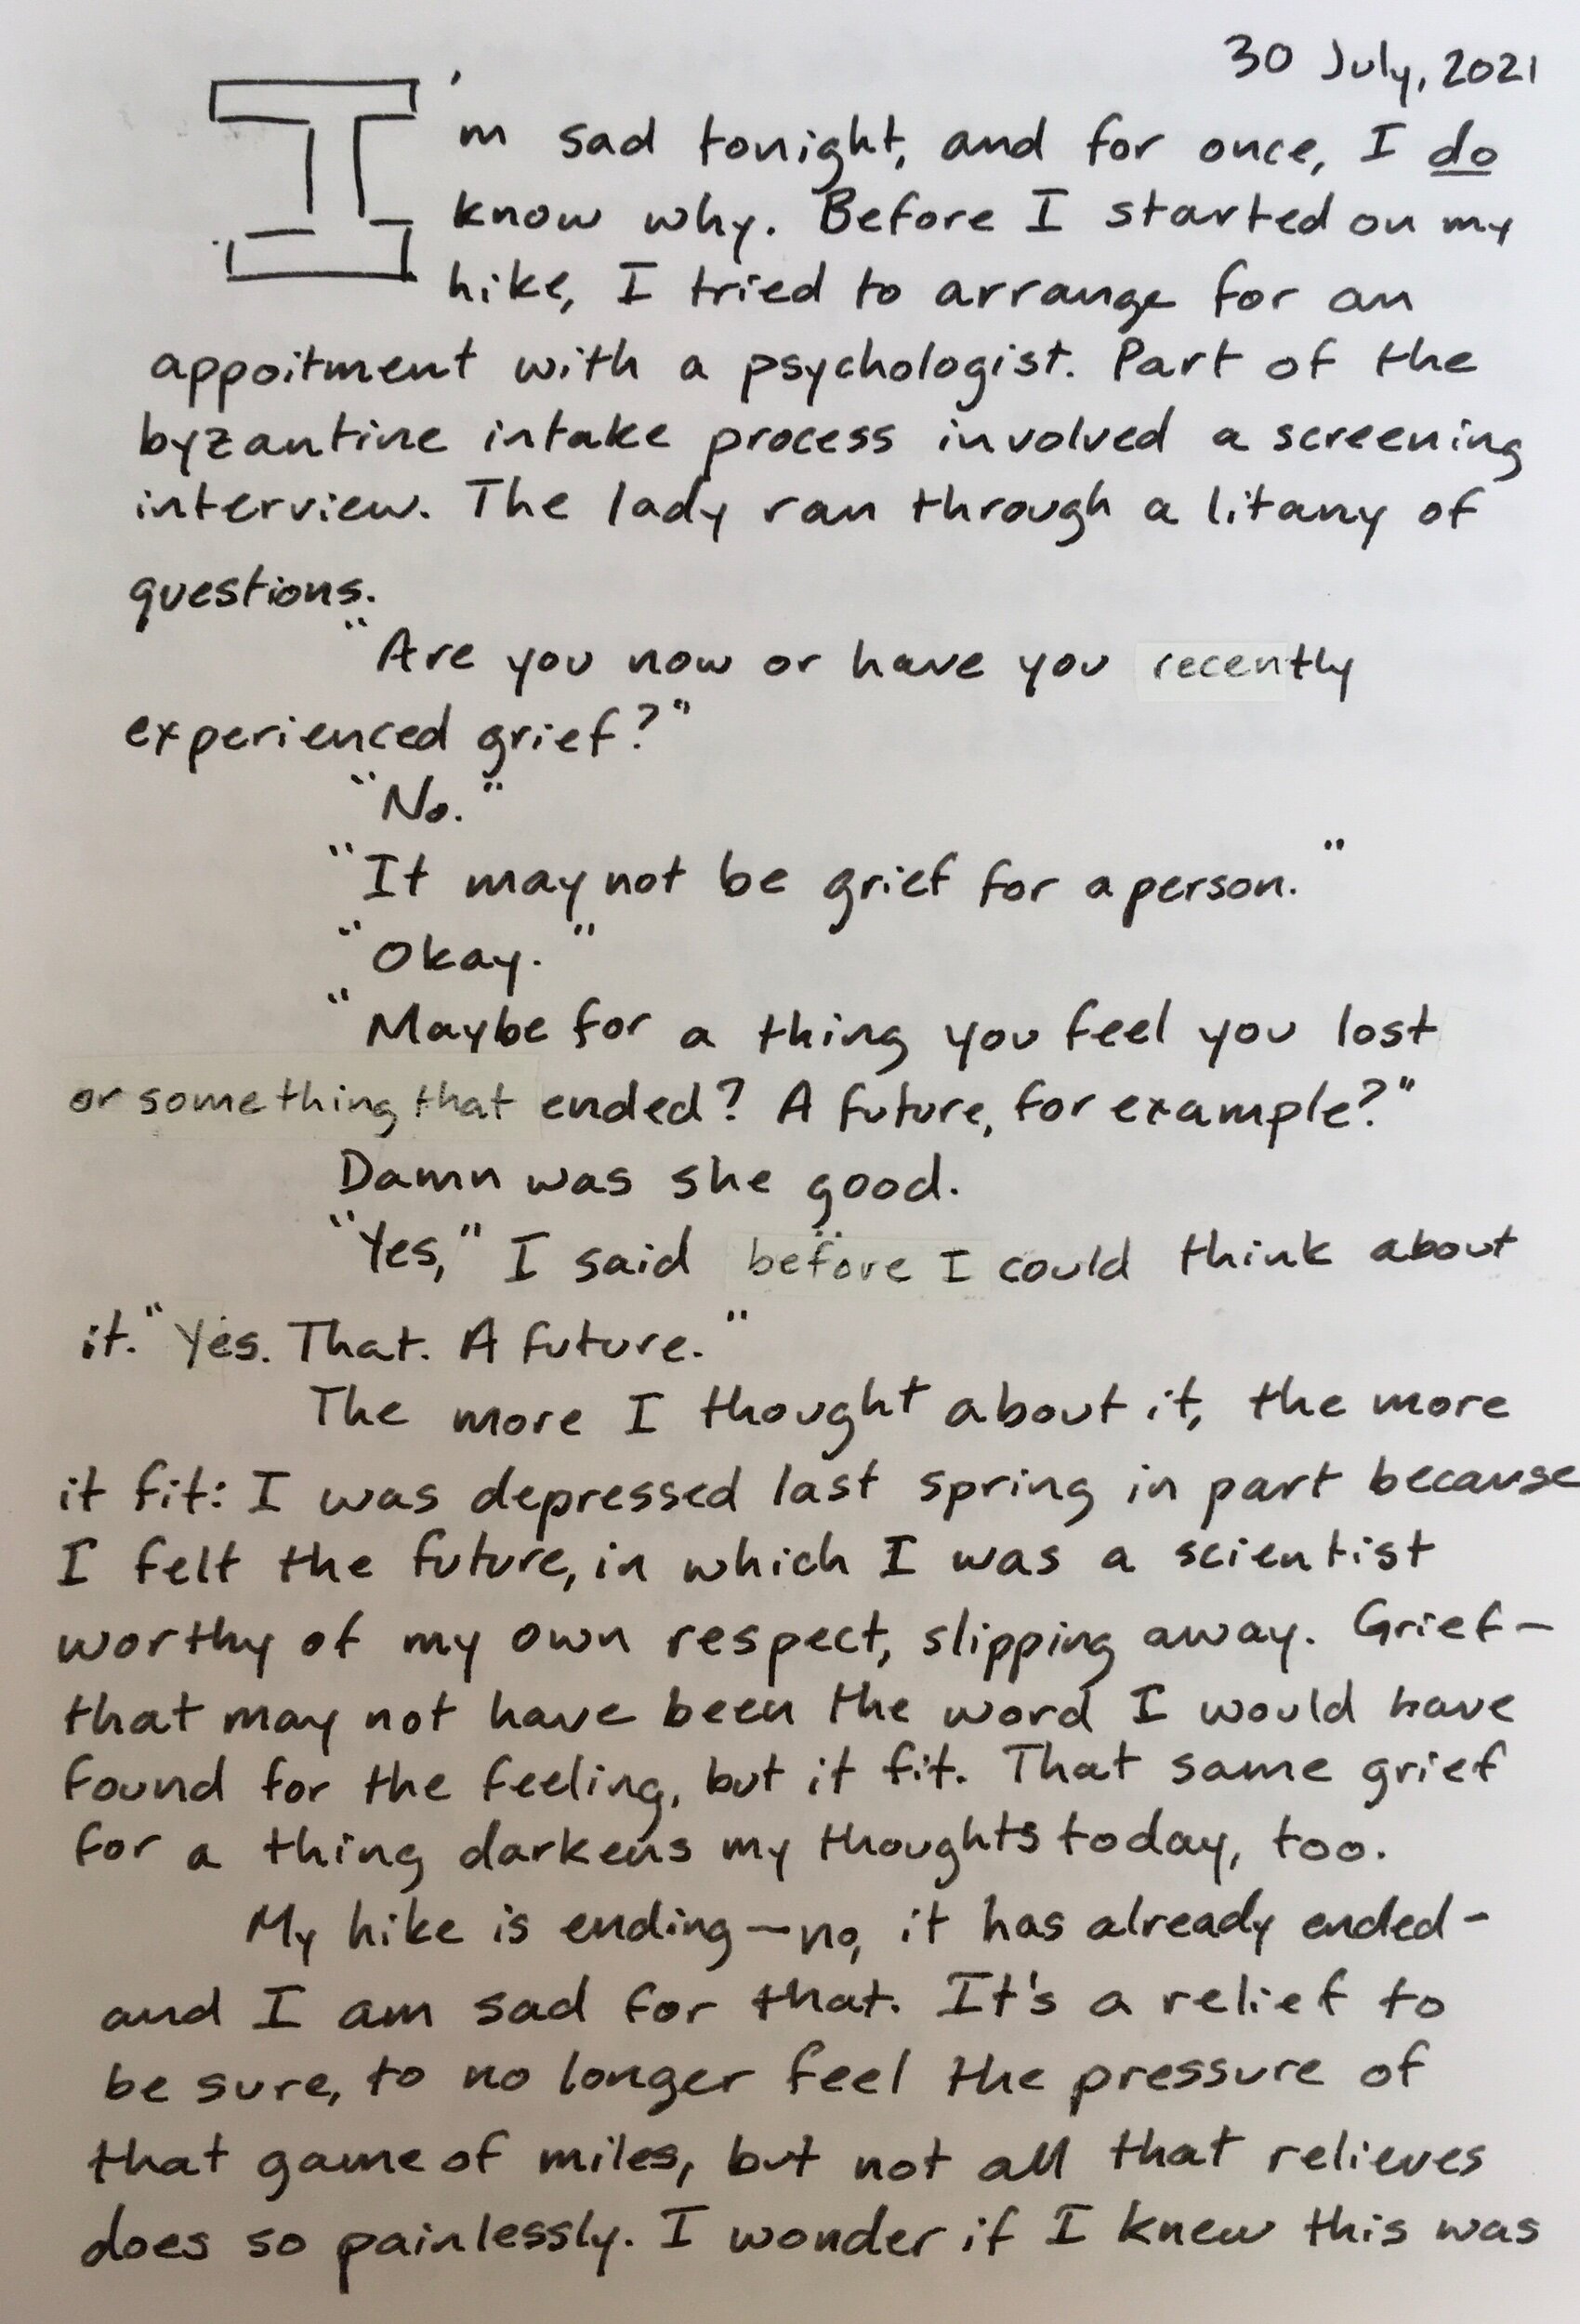 30 July, 2021
I'm sad tonight, and for once, I do
know why. Before I started on my
hike, I tried to arrange for an
appoitment with a psychologist. Part of the
byzantine intake process involved a screening
interview. The lady ran through a litany of
questions.
"Are you now or have you recently
experienced grief?"
"No."
"It may not be grief for a person."
"Okay."
"Maybe for a thing you feel you lost
or something that ended? A future, for example?"
Damn was she good.
"Yes," I said before I could think about
it. "Yes. That. A future."
The more I thought about it, the more
it fit: I was depressed last spring in part because
I felt the future, in which I was a scientist
worthy of my own respect, slipping away. Grief—
that may not have been the word I would have
found for the feeling, but it fit. That same grief
for a thing darkens my thoughts today, too.
My hike is ending—no, it has already ended—
and I am sad for that. It's a relief to
be sure, to no longer feel the pressure of
that game of miles, but not all that relieves
does so painlessly. I wonder if I knew this was